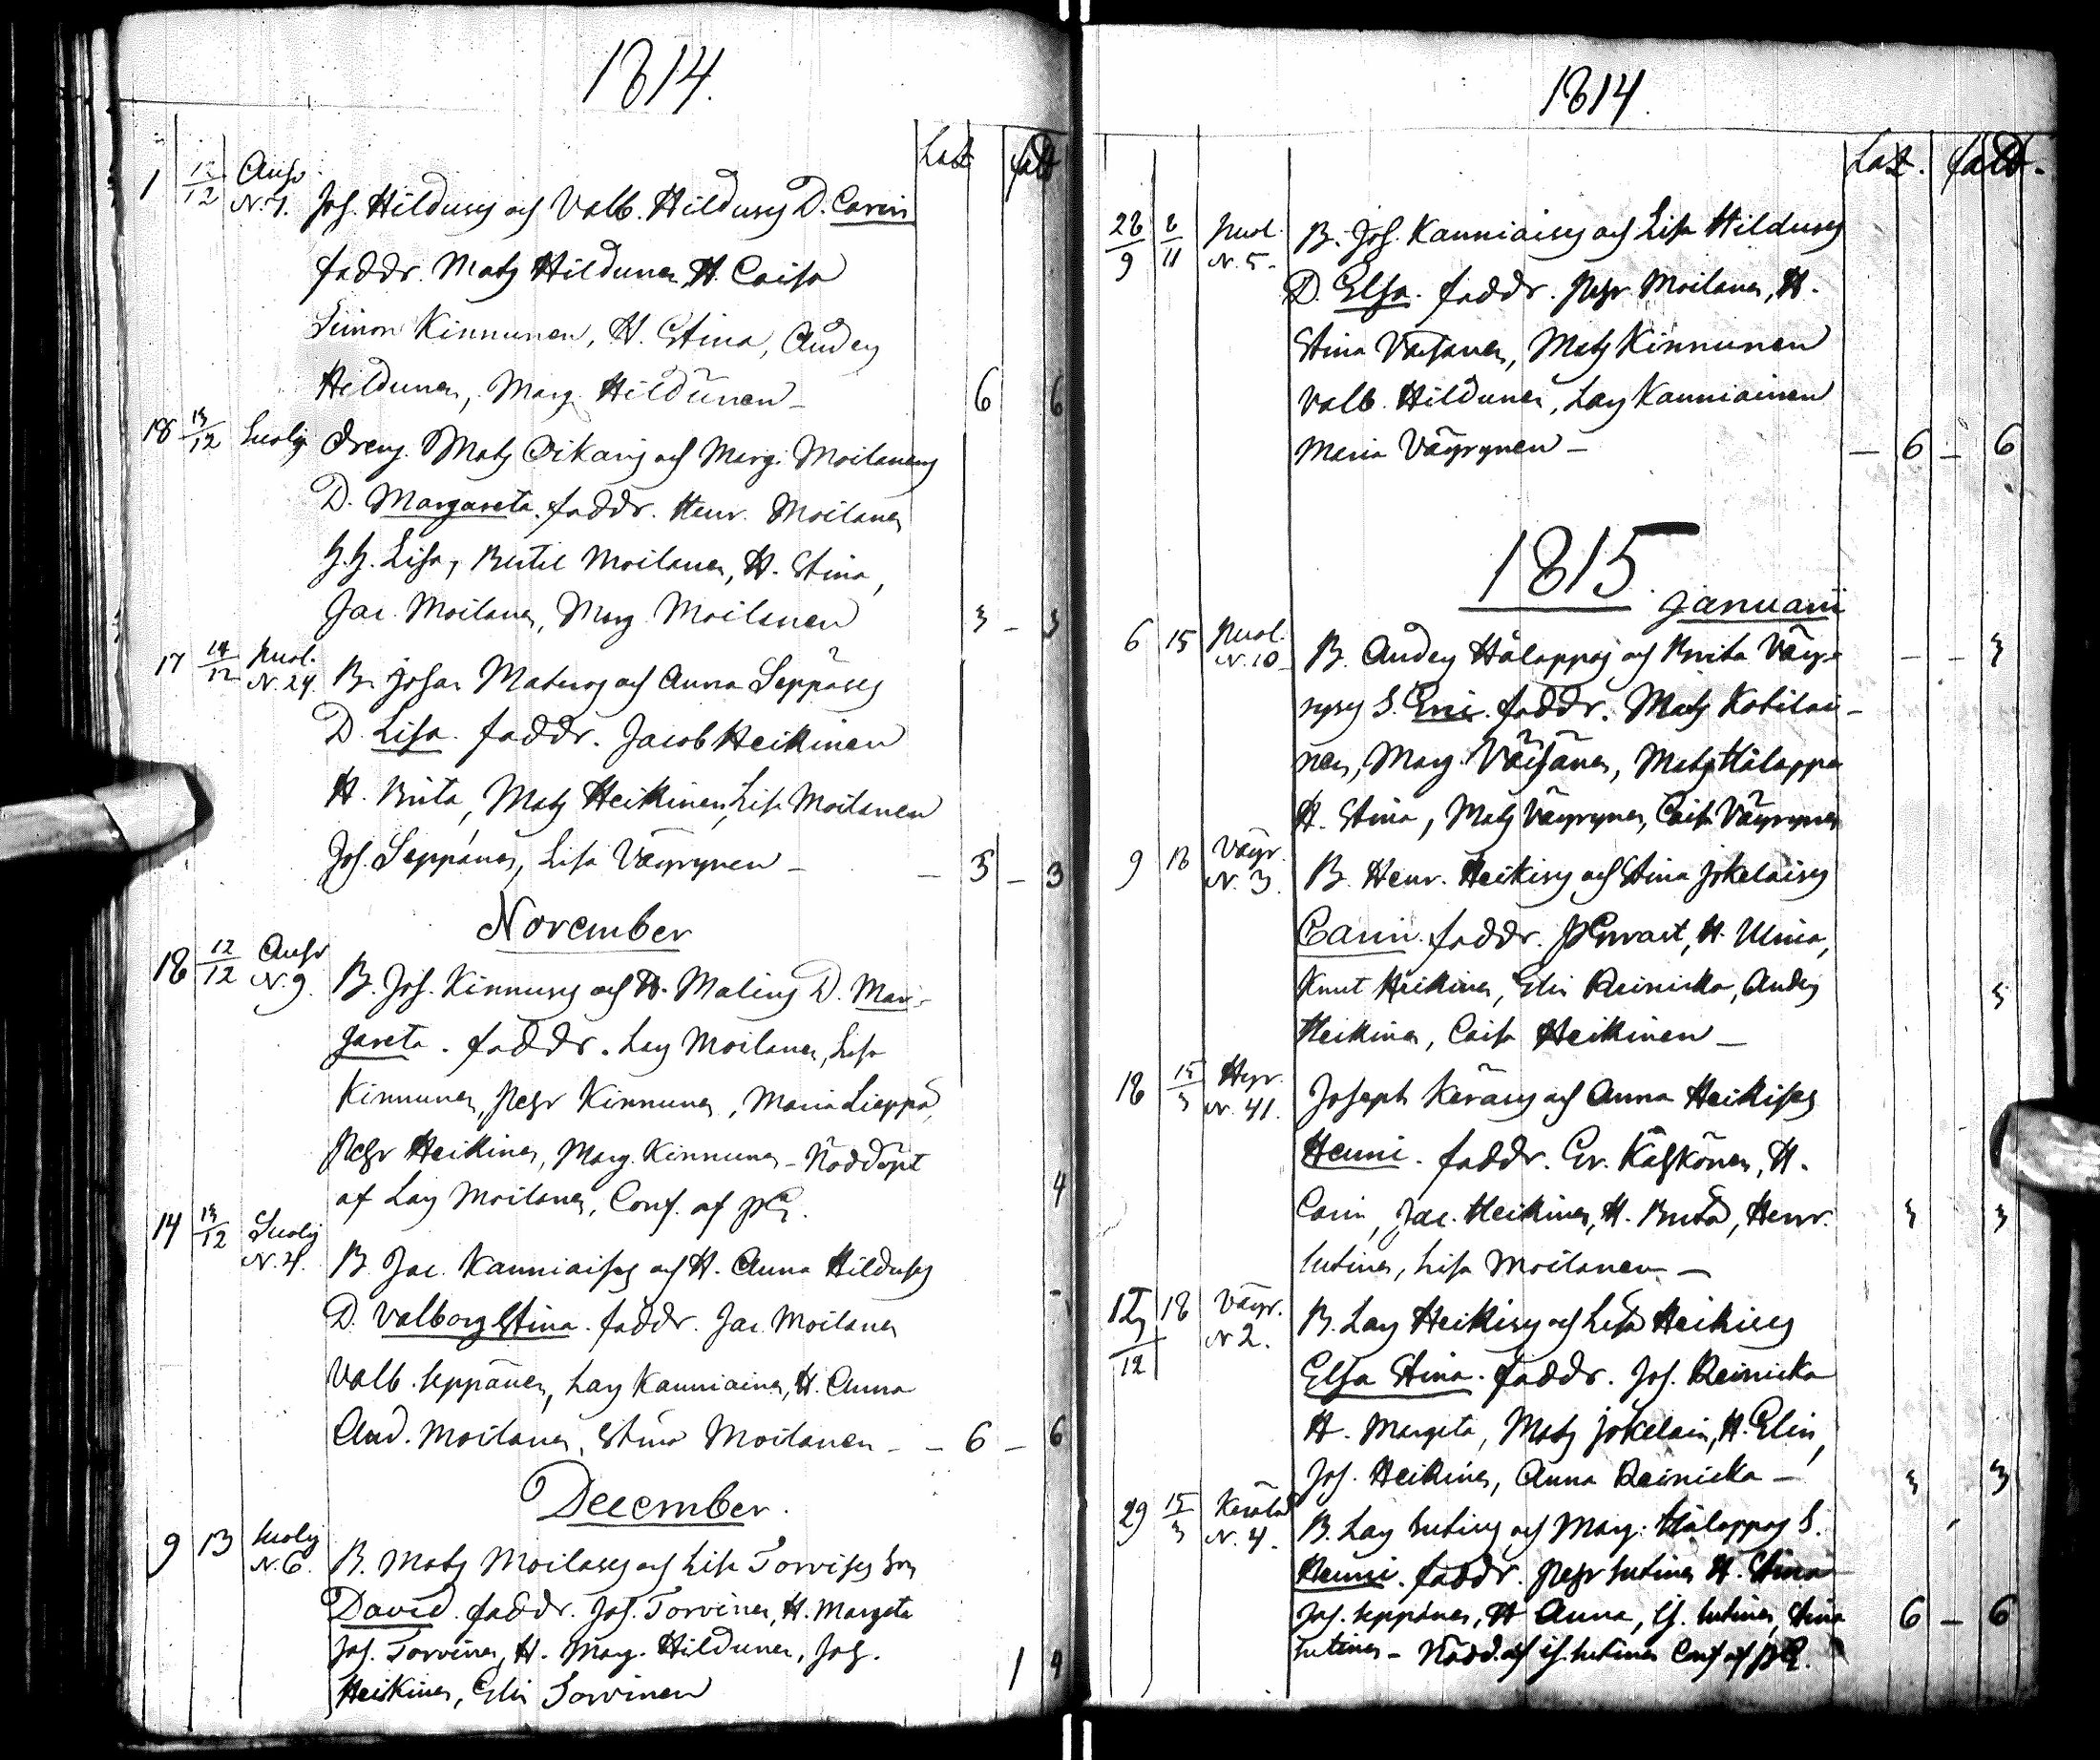 1814.
Last fadd
1 12/12 Anso
N. 7. Jos. Hildung och Valb. Hildung D. Carin
faddr. Matz Hildunen H. Caisa
Simon Kinnunen, H. Stina, Anders
Hildunen, Marg. Hildunen — 6 6
18 13/12 Suolij Dreng. Matz Oikaris och Marg. Moilanens
D. Margareta. faddr. Henr. Moilanen
H.H. Lisa, Bertil Moilanen, H. Stina,
Jac. Moilanen, Marg. Moilanen 3 — 3
17 14/12 Puol.
N. 24. B. Johan Materos och Anna Seppäses
D. Lisa. faddr. Jacob Heikinen
H. Brita, Matz Heikinen, Lisa Moilanen
Jos. Seppänen, Lisa Väyrynen — — 3 — 3
November
18 12/12 Anso
N. 9. B. Jos. Kinnuses och H. Malins D. Mar-
gareta. faddr. Lars Moilanen, Lisa
Kinnunen, Pehr Kinnunen, Maria Lieppä,
Pehr Heikinen, Marg. Kinnunen — Nöddöpt
af Lars Moilanen, Conf. af 4
14 13/12 Suolij
N. 4. B. Jac. Kanniaises och H. Anna Hilduses
D. Valborg Stina. faddr. Jac. Moilanen
Valb. Seppänen, Lars Kanniainen, H. Anna
And. Moilanen, Stina Moilanen — — 6 — 6
December.
9 13 Suolij
N. 6. B. Matz Moilases och Lisa Torvises Son
David. faddr. Jos. Torvinen, H. Margeta
Joh. Torvinen, H. Marg. Hildunen, Joh.
Heikinen, Elin Torvinen 1 4
1814.
Last. fadd.
28/9 6/11 Puol.
N. 5. B. Jos. Kanniaises och Lisa Hilduses
D. Elsa. faddr. Pehr Moilanen, H.
Stina Väisänen, Matz Kinnunen
Valb. Hildunen, Lars Kanniainen
Maria Väyrynen — — 6 — 6
1815.
Januarii
6 15 Puol.
N. 10 B. Anders Hålappas och Brita Väyr- — — 3
ryses S. Eric. faddr. Matz Kotilai-
nen, Marg. Väisänen, Matz Hålappa
H. Stina, Matz Väyrynen, Caisa Väyrynen
9 18 Väyr.
N. 3. B. Henr. Heikises och Stina Jokelaises
Carin. faddr. H. Ulrica,
Knut Heikinen, Elin Reinicka, Anders 3
Heikinen, Caisa Heikinen —
18 15/3 Hyr.
N. 41. Joseph Keräses och Anna Heikises
Henric. faddr. Er. Kähkönen, H.
Carin, Jac. Heikinen, H. Brita, Henr. 3 3
Lutinen, Lisa Moilanen —
12 18 Väyr.
N 2. B. Lars Heikises och Lisa Heikises
Elsa Stina. faddr. Jos. Reinicka
H. Margeta, Matz Jokelain, H. Elin,
Jos. Heikinen, Anna Reinicka — 3 3
29 15/3 Keräläb
N. 4. B. Lars Lutises och Marg. Hålappas S.
Henric. faddr. Pehr Lutinen H. Stina
Jos. Seppänen, H Anna, Is. Lutinen, Stina 6 — 6
Lutinen — Nödd. af Is. Lutinen Conf. af